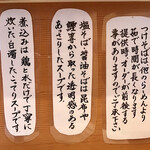 つけそばは他のらーめんより
茹で時間が長くなります
提供時、オーダーが前後する
事がありますがご了承下さい。
塩そば・醤油そばは昆布や
鰹等から取った透明感ある
あっさりしたスープです。
煮込みは鶏と水だけで丁寧に
炊いた白濁したこってりスープです